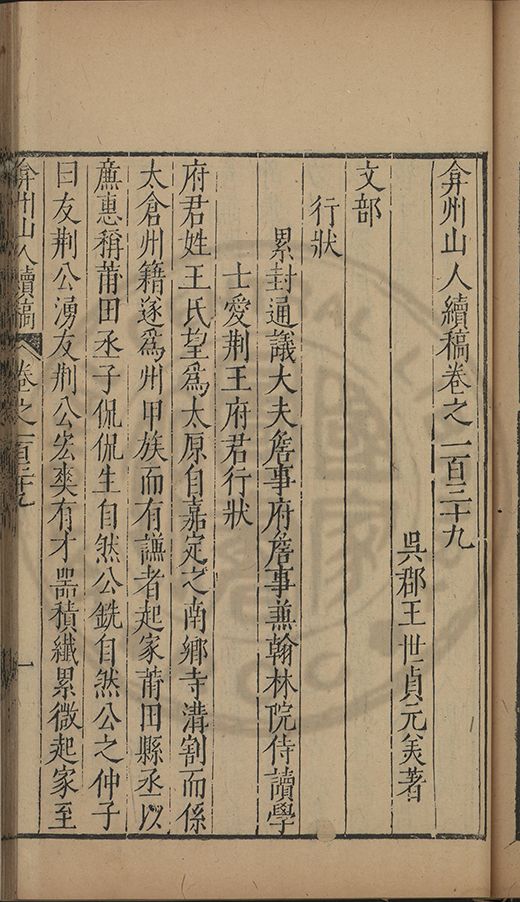 弇州山人續稿卷之一百三十九
吳郡王世貞元美著
文部
行狀
累封通議大夫詹事府詹事兼翰林院侍讀學
士愛荆王府君行狀
府君姓王氏望爲太原自嘉定之南鄉寺溝割而係
太倉州籍遂爲州甲族而有謙者起家莆田縣丞以
廉惠稱莆田丞子侃侃生自然公銑自然公之仲子
曰友荆公湧友荆公宏奕有才噐積纖累微起家至
弇州山人續稿 卷之一百三十九 一